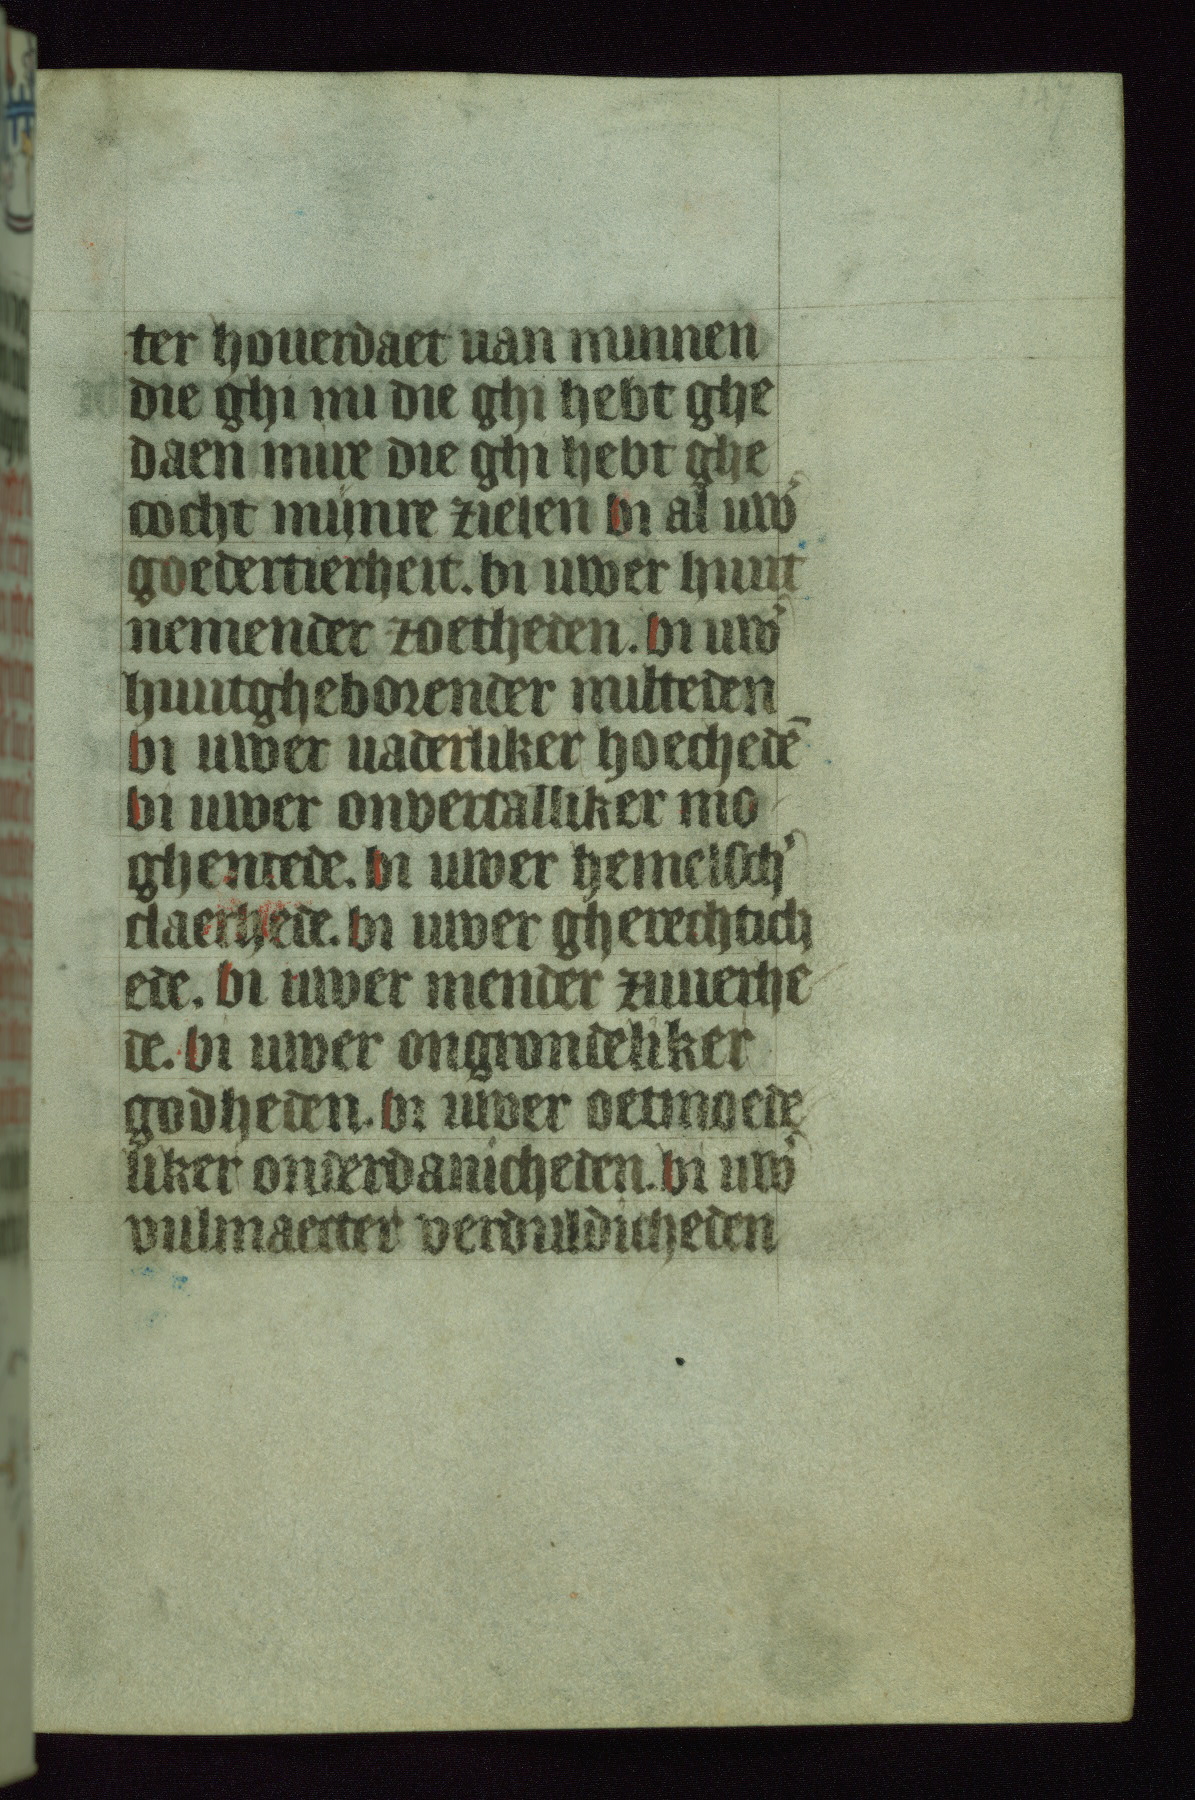 147
ter houerdaet uan minnen
die ghi mi die ghi hebt ghe
daen mire die ghi hebt ghe
cocht mijnre zielen bi al uw̾
goedertierheit. bi uwer huut
nemender zoetheden. bi uw̾
huutgheborender milteden
bi uwer uaderliker hoechedē
bi uwer onvertalliker mo
ghentede. bi uwer hemelsch̾
claerhede. bi uwer gherechtich
ede. bi uwer mender zuuerhe
de. bi uwer ongrondeliker
godheden. bi uwer oetmoede
liker onderdanicheden. bi uw̾
vulmaecter verduldicheden